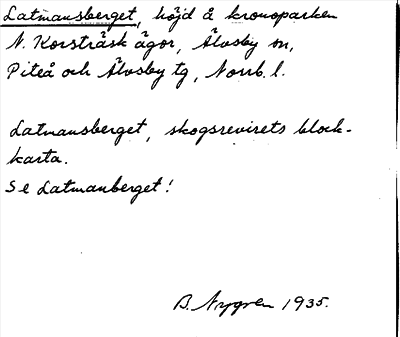 Latmansberget, höjd å kronoparken
N. Korsträsk ägor, Älvsby sn,
Piteå och Älvsby tg, Norrb. l.
Latmansberget, skogsrevirets block-
karta.
Se Latmanberget!
B. Nygren 1935.